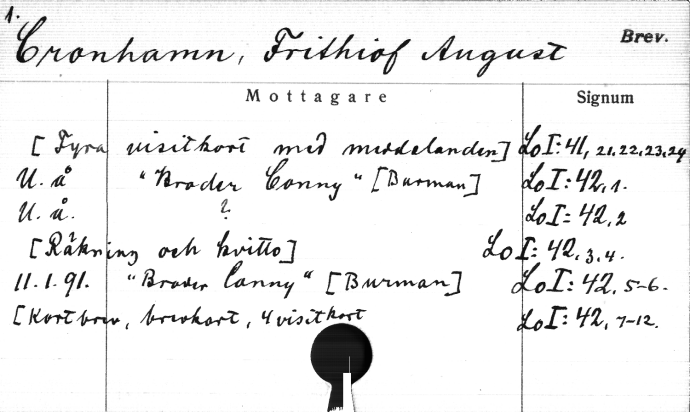 1.
Cronhamn, Frithiof August Brev.
Mottagare Signum
[Fyra visitkort med meddelanden] LoI:41, 21.22.23.24
U. å "Broder Conny" [Burman] LoI:42, 1.
U. å. ? LoI:42, 2
[Räkning och kvitto] LoI:42, 3, 4.
11.1.91. "Broder Conny" [Burman] LoI:42, 5-6.
[Kortbrev, brevkort, 4 visitkort LoI:42, 7-12.